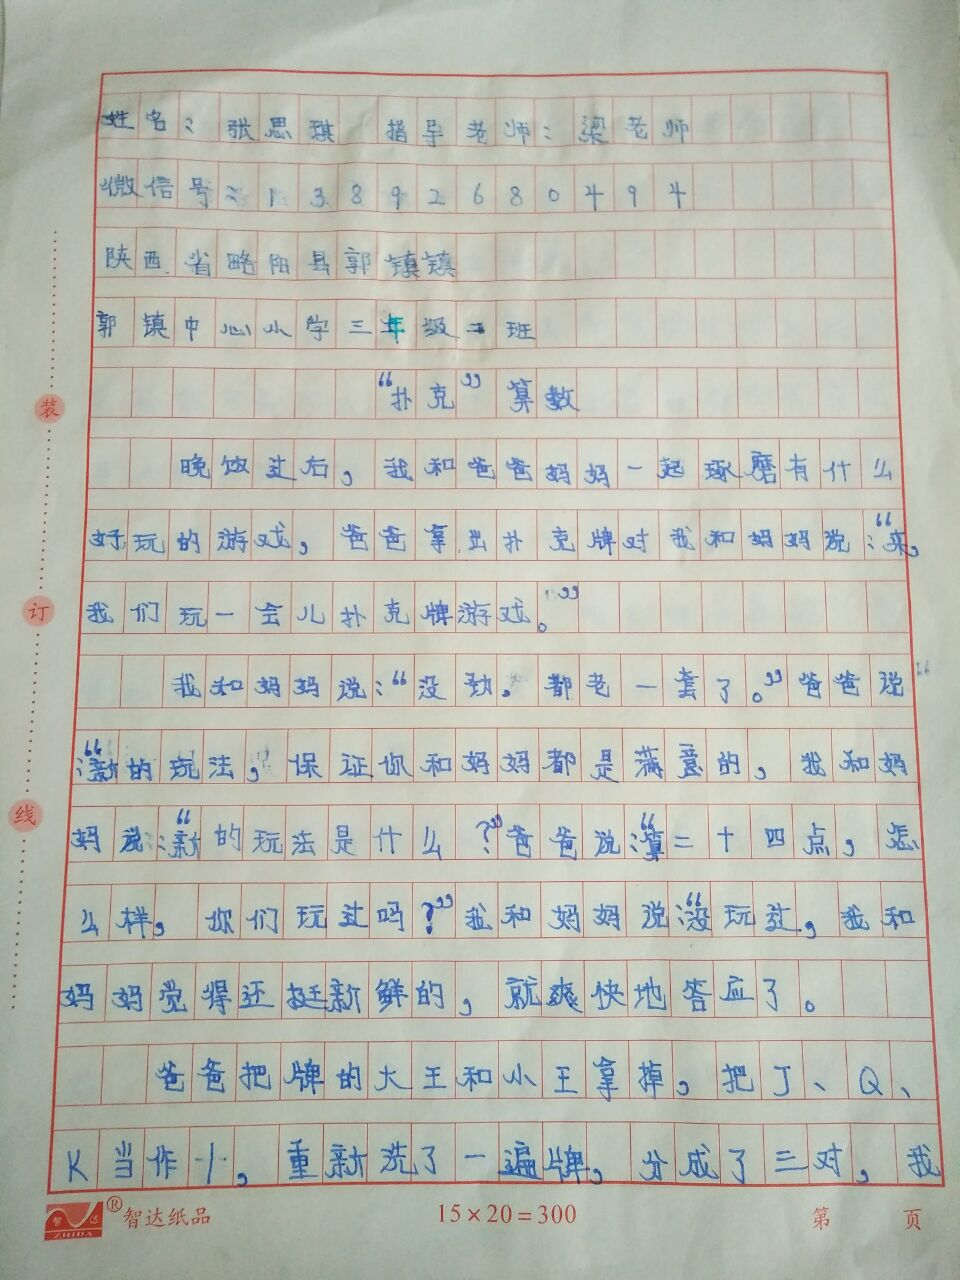 姓名：张思琪 指导老师：梁老师
微信号：13892680494
陕西省略阳县郭镇镇
郭镇中心小学三年级二班
“扑克”算数
晚饭过后，我和爸爸妈妈一起琢磨有什么
好玩的游戏，爸爸拿出扑克牌对我和妈妈说：“来，
我们玩一会儿扑克牌游戏。”
我和妈妈说：“没劲，都老一套了。”爸爸说
：“新的玩法，保证你和妈妈都是满意的，我和妈
妈说：“新的玩法是什么？”爸爸说：“算二十四点，怎
么样，你们玩过吗？”我和妈妈说：“没玩过，我和
妈妈觉得还挺新鲜的，就爽快地答应了。
爸爸把牌的大王和小王拿掉，把J、Q、
K当作1，重新洗了一遍牌，分成了三对，我
装
订
线
智达
ZHIDA
®智达纸品
15×20=300
第 页